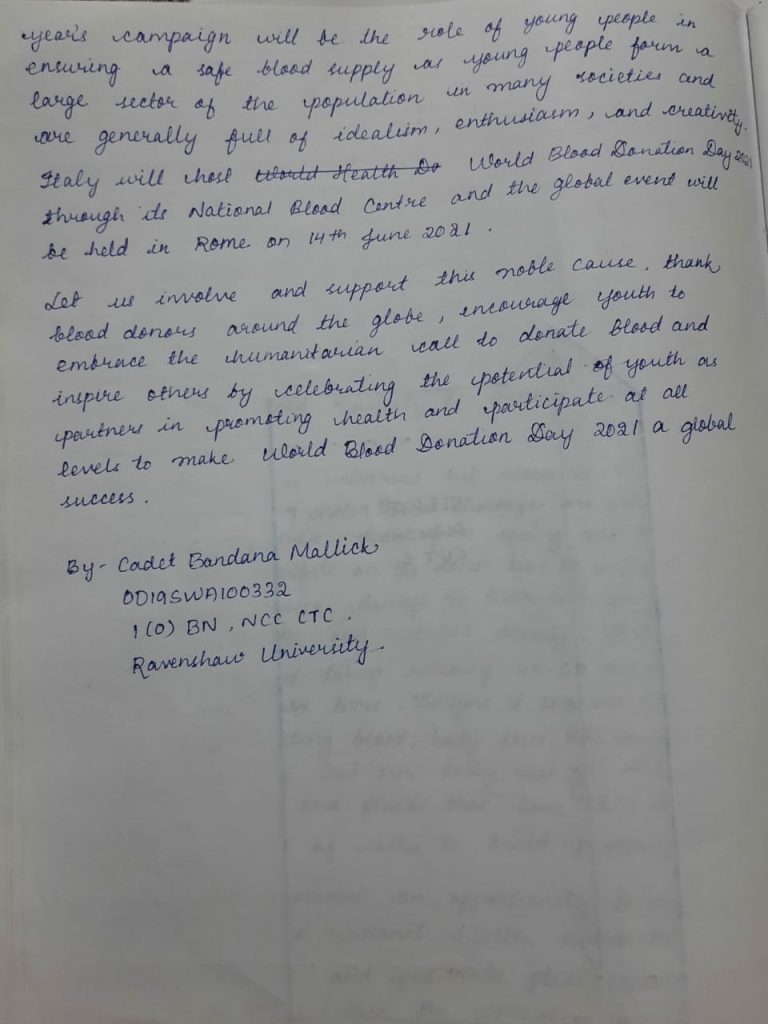 year's campaign will be the role of young people in
ensuring a safe blood supply as young people form a
large sector of the population in many societies and
are generally full of idealism, enthusiasm, and creativity.
Italy will host World Health Da World Blood Donation Day 2021
through its National Blood Centre and the global event will
be held in Rome on 14th June 2021.
Let us involve and support this noble cause, thank
blood donors around the globe, encourage youth to
embrace the humanitarian call to donate blood and
inspire others by celebrating the potential of youth as
partners in promoting health and participate at all
levels to make World Blood Donation Day 2021 a global
success.
By- Cadet Bandana Mallick
OD19SWA100332
1(O) BN, NCC CTC.
Ravenshaw University.